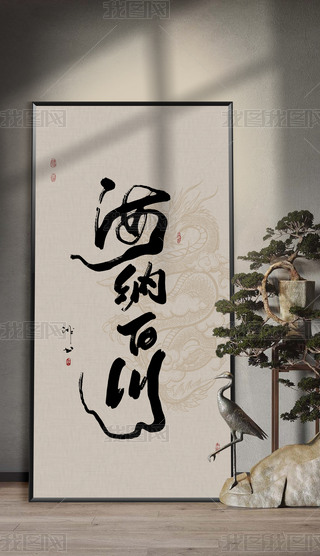 海纳百川
我图网